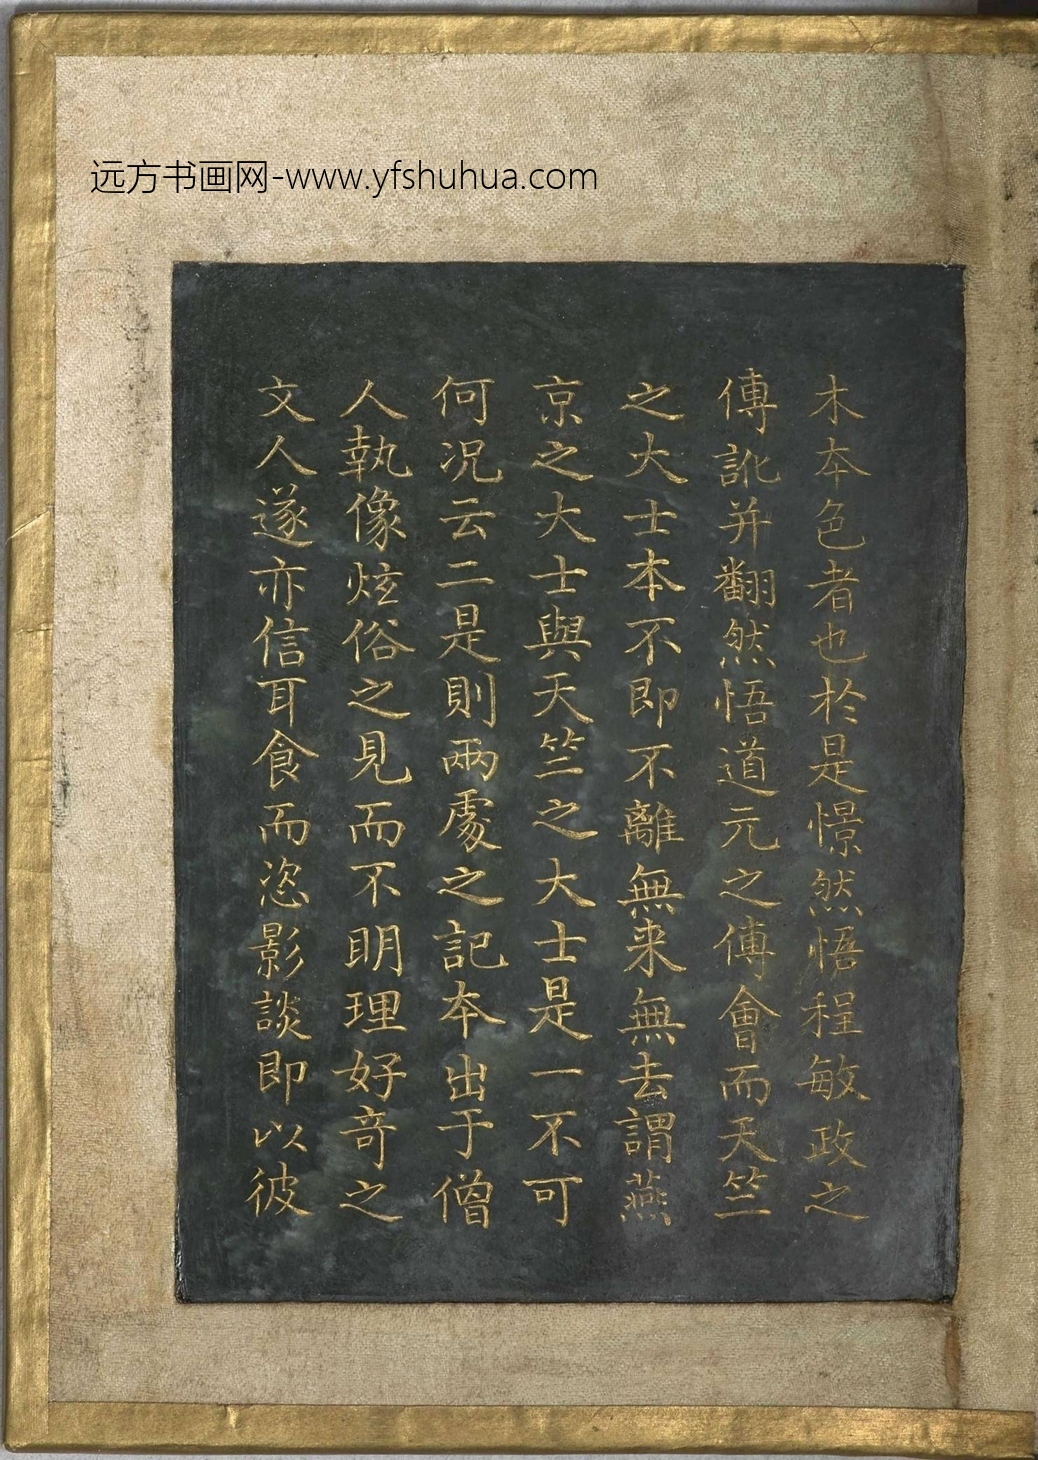 远方书画网-www.yfshuhua.com
木本色者也於是憬然悟程敏政之
傳訛并翻然悟道元之傅會而天竺
之大士本不即不離無来無去謂燕
京之大士與天竺之大士是一不可
何况云二是則兩處之記本出于僧
人執像炫俗之見而不明理好奇之
文人遂亦信耳食而恣影談即以彼